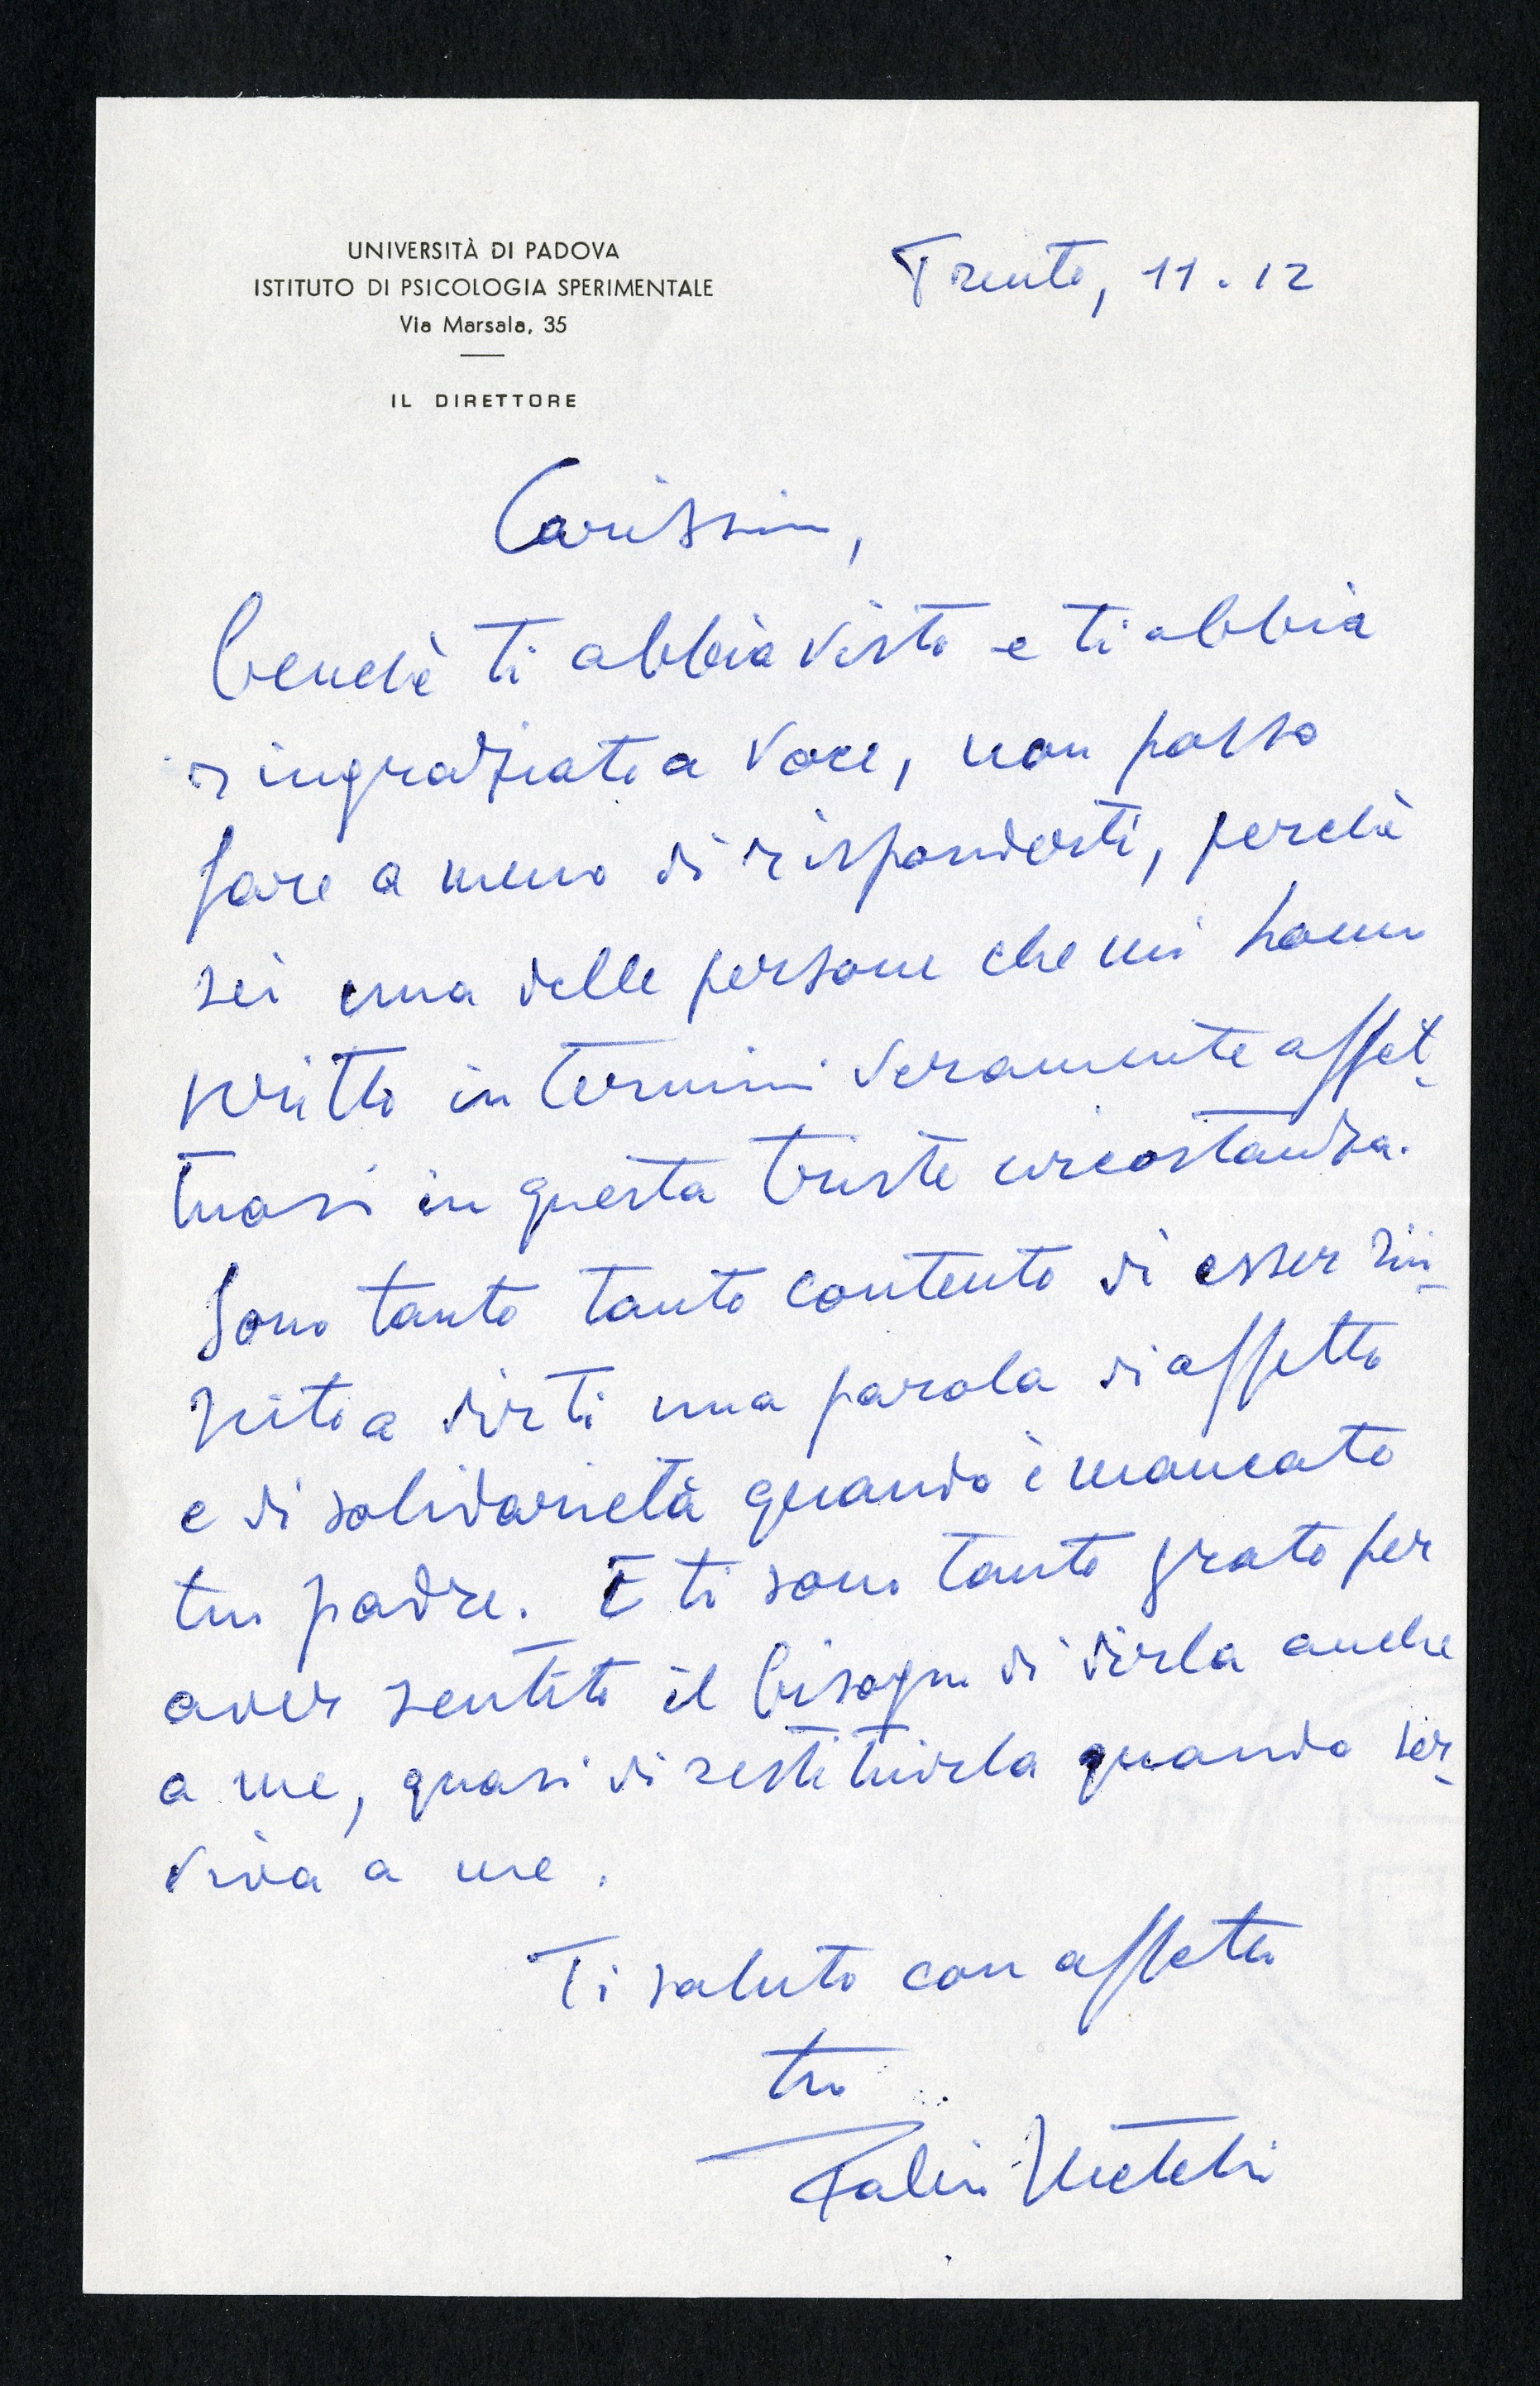 UNIVERSITÀ DI PADOVA
ISTITUTO DI PSICOLOGIA SPERIMENTALE
Via Marsala, 35
IL DIRETTORE
Trento, 11.12
Carissimo,
benchè ti abbia visto e ti abbia
ringraziato a voce, non posso
fare a meno di risponderti, perchè
sei una delle persone che mi hanno
scritto in termini veramente affet-
tuosi in questa triste circostanza.
Sono tanto tanto contento di esser riu-
scito a dirti una parola di affetto
e di solidarietà quando è mancato
tuo padre. E ti sono tanto grato per
aver sentito il bisogno di dirla anche
a me, quasi di restituirla quando ser-
viva a me.
Ti saluto con affetto
tuo
Fabio Metelli